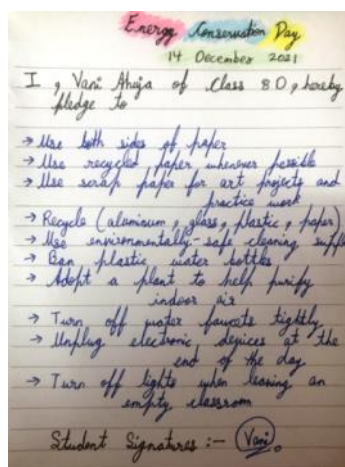 Energy Conservation Day
14 December 2021
I, Vani Ahuja of Class 8D, hereby
pledge to
→ Use both sides of paper
→ Use recycled paper whenever possible
→ Use scrap paper for art projects and
practice work
→ Recycle (aluminium, glass, plastic, paper)
→ Use environmentally-safe cleaning
→ Ban plastic water bottles
→ Adopt a plant to help purify
indoor air
→ Turn off water faucets tightly
→ Unplug electronic devices at the
end of the day
→ Turn off lights when leaving an
empty classroom
Student Signatures :- Vani.